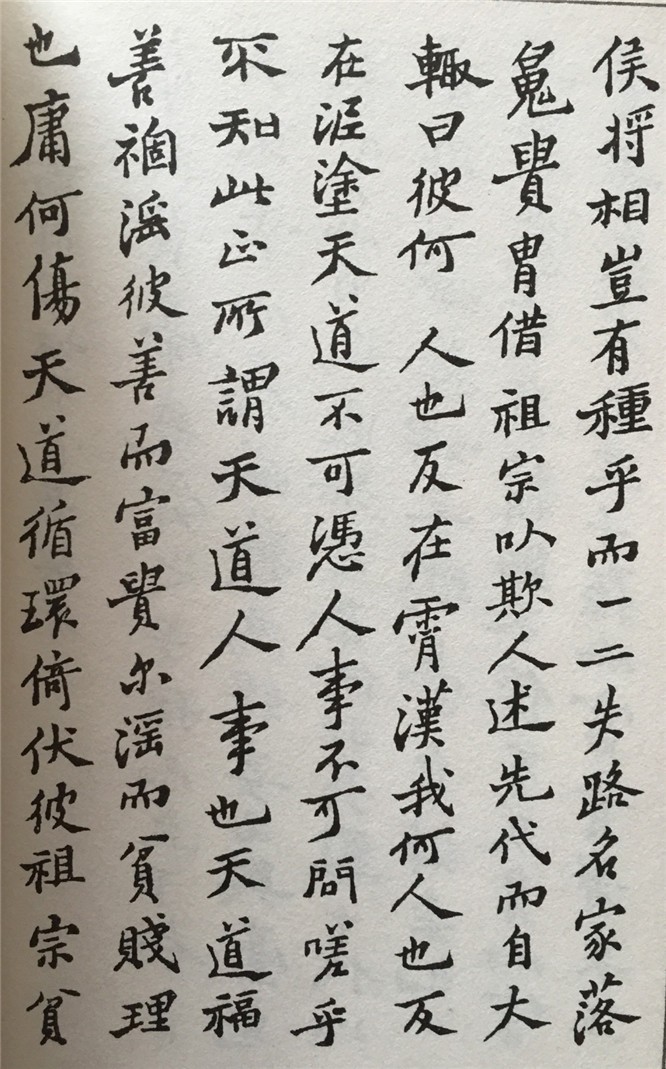 侯将相豈有種乎而一二失路名家落
魄貴胄借祖宗以欺人述先代而自大
輙曰彼何人也反在霄漢我何人也反
在泥塗天道不可憑人事不可問嗟乎
不知此正所謂天道人事也天道福
善禍淫彼善而富貴尔淫而貧賤理
也庸何傷天道循環倚伏彼祖宗貧